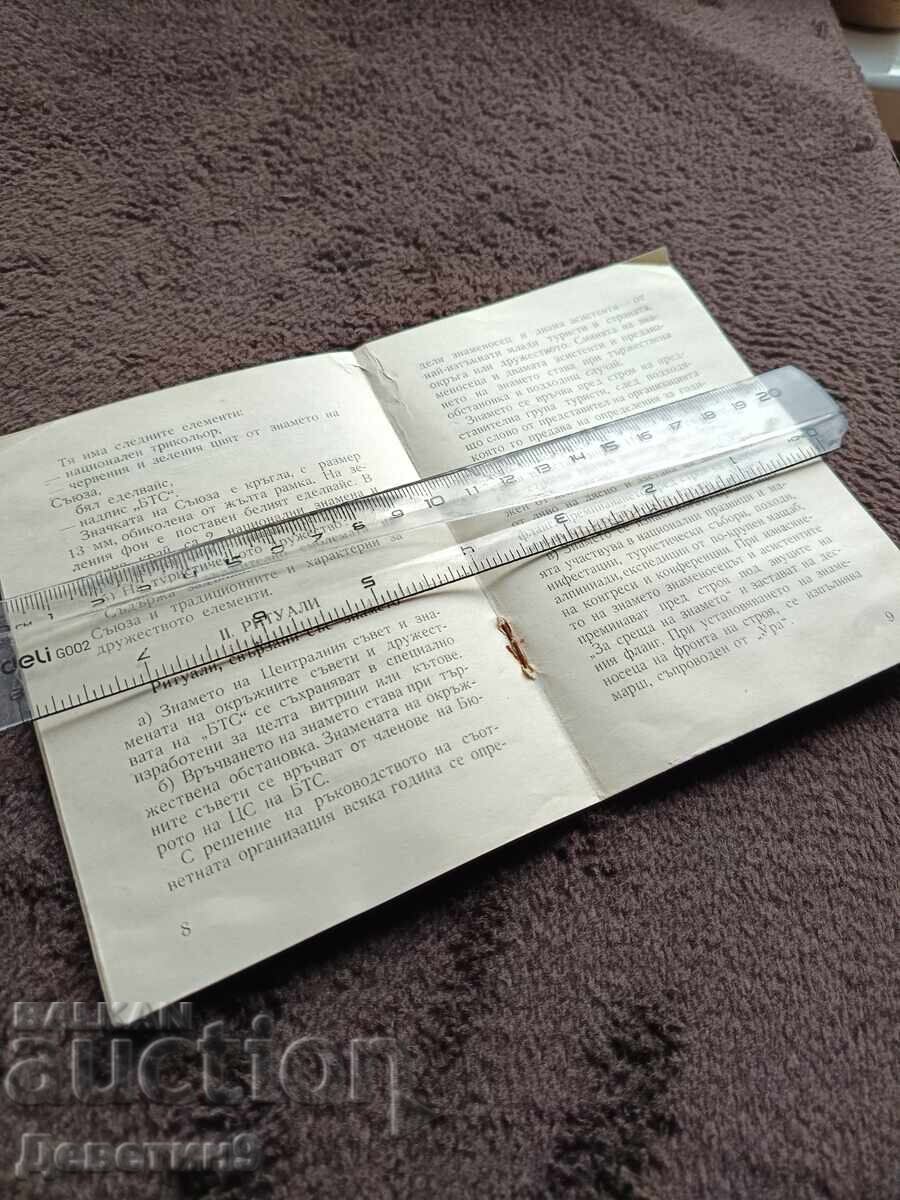 Тя има следните елементи:
— национален трикольор,
— червения и зеления щит от знамето на
Съюза,
бял еделвайс.
— надпис „БТС“.
Значката на Съюза е кръгла, с размер
13 мм, обиколена от жълта рамка. На зе-
ления фон е поставен белият еделвайс. В
национални знамена
туристическото дружество
Съдържа
и характерни за
Съюза и традиционните
дружеството елементи.
II. РИТУАЛИ
Ритуали, свързани със знамето
а) Знамето на Централния съвет и зна-
мената на окръжните съвети и дружест-
вата на „БТС“ се съхраняват в специално
изработени за целта витрини или кътове.
б) Връчването на знамето става при тър-
жествена обстановка. Знамената на окръж-
ните съвети се връчват от членове на Бю-
рото на ЦС на БТС.
С решение на ръководството на съот-
ветната организация всяка година се опре-
8
деля знаменосец и двама асистенти — от
най-изтъкнати млади туристи в страната,
окръга или дружеството. Смяната на зна-
меносеца и двамата асистенти и предава-
нето на знамето става при тържествена
обстановка и подходящ случай.
Знамето се връчва пред строя на пред-
ставителна група туристи, след подходя-
що слово от представител на организацията,
която го предава на определения за
ята участвува в национални празници и ма-
нифестации, туристически събори, походи,
алпиниади, експедиции от по-крупен мащаб,
на конгреси и конференции. При изнасяне-
то на знамето знаменосецът и асистентите
преминават пред строя под звуците на
„За среща на знамето“ и застават на дес-
ния фланг. При установяването на знаме-
носеца на фронта на строя, се изпълнява
марш, съпроводен от „Ура“.
9
см 1 2 3 4 5 6 7 8 9 10 11 12 13 14 15 16 17 18 19 20
deli G002
7 6 5 4 3 2 1
BALKAN
auction
Деветин9